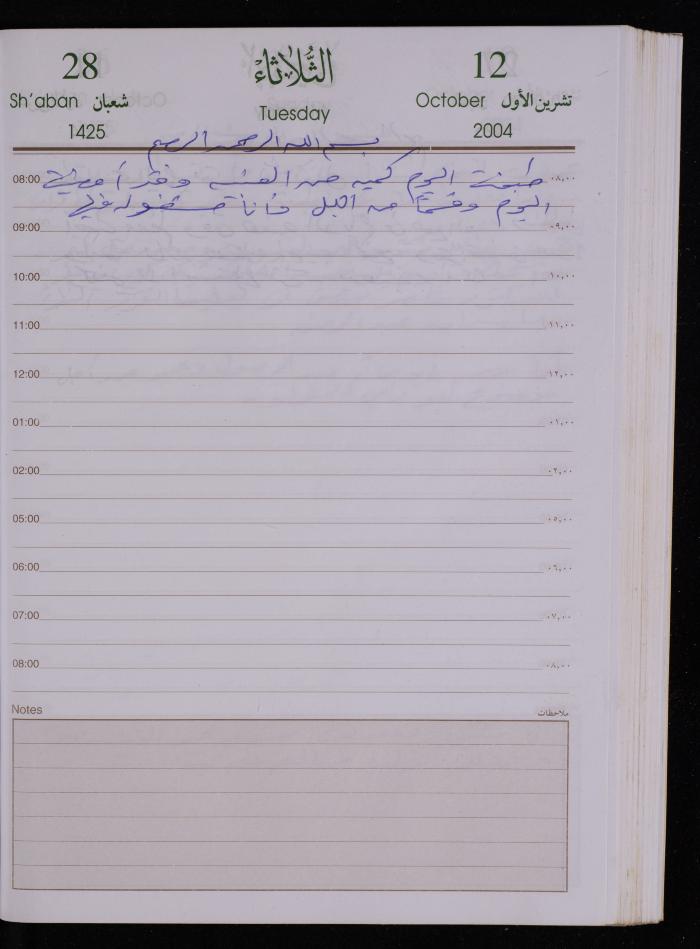 28 الثُّلَاثَاءْ 12
Sh'aban شعبان Tuesday October تشرين الأول
1425 2004
بسم الله الرحمن الرحيم
08:00 طبخت اليوم كمية من ٠٨,٠٠
اليوم وقسماً من الليل وأنا مشغولة في
09:00 ٠٩,٠٠
10:00 ١٠,٠٠
11:00 ١١,٠٠
12:00 ١٢,٠٠
01:00 ٠١,٠٠
02:00 ٠٢,٠٠
05:00 ٠٥,٠٠
06:00 ٠٦,٠٠
07:00 ٠٧,٠٠
08:00 ٠٨,٠٠
Notes ملاحظات